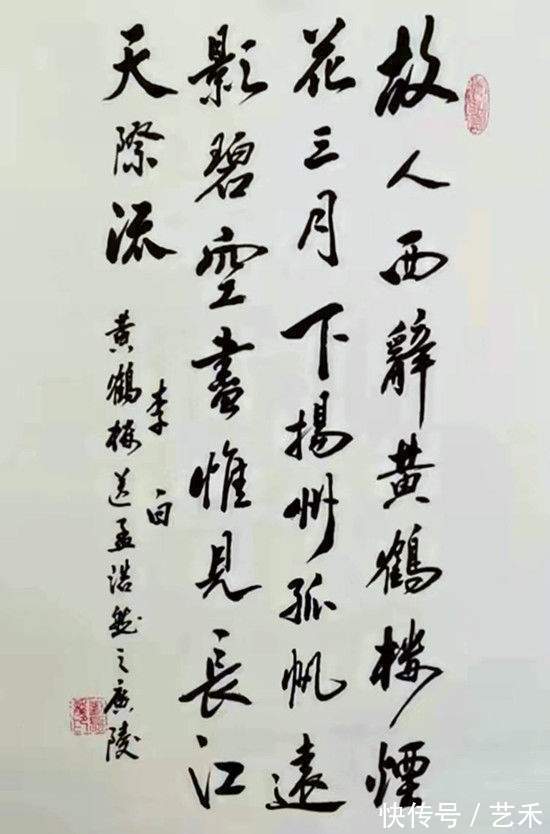 故人西辭黄鶴樓煙
花三月下揚州孤帆遠
影碧空盡惟見長江
天際流
李白
黄鶴樓送孟浩然之廣陵
快传号／艺禾